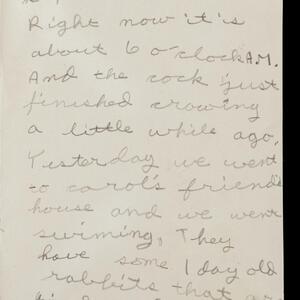 Right now it is
about 6 o'clock A.M.
And the cock just
finished crowing
a little while ago.
Yesterday we went
to carol's friends
house and we went
swiming, They
have some 1 day old
rabbits that